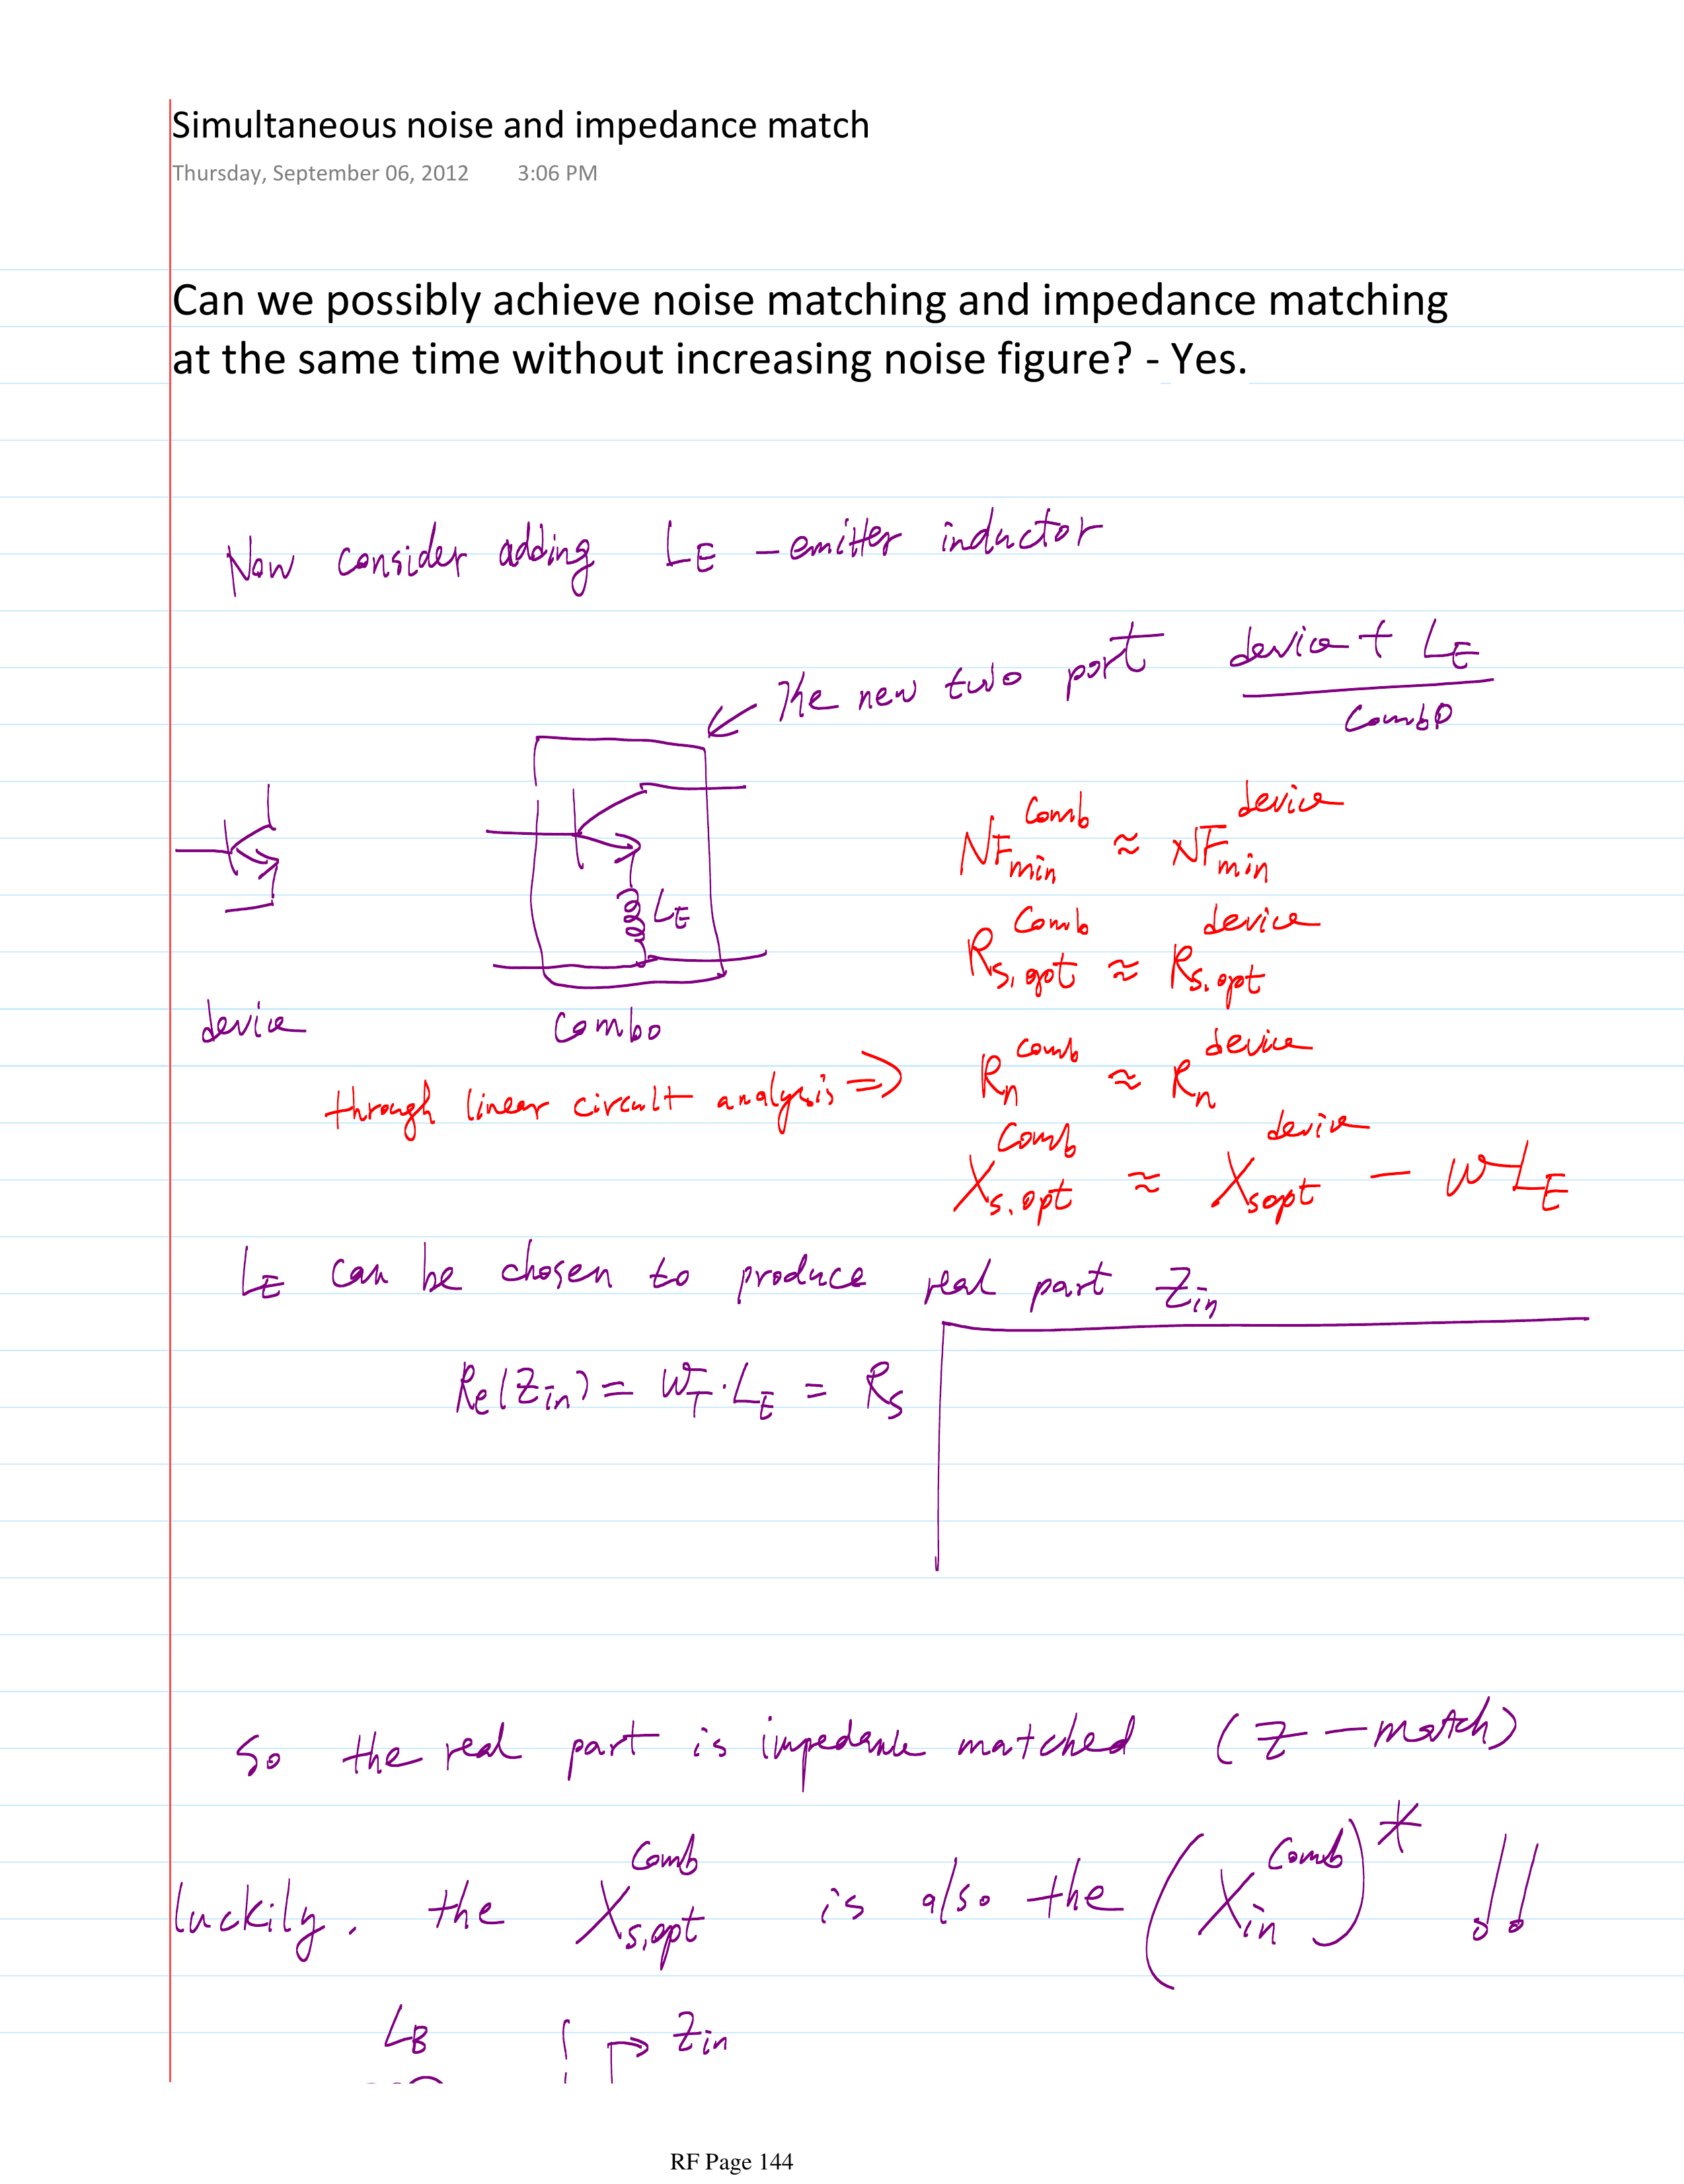 Simultaneous noise and impedance match
Thursday, September 06, 2012 3:06 PM
Can we possibly achieve noise matching and impedance matching
at the same time without increasing noise figure? - Yes.
Now consider adding L_E - emitter inductor
The new two port device + L_E
Combo
NF_min^Comb ≈ NF_min^device
L_E
R_s,opt^Comb ≈ R_s,opt^device
device
Combo
R_n^Comb ≈ R_n^device
through linear circuit analysis =>
X_s,opt^Comb ≈ X_sopt^device - ωL_E
L_E can be chosen to produce real part Z_in
Re(Z_in) = ω_T · L_E = R_s
So the real part is impedance matched (Z-match)
luckily. the X_s,opt^Comb is also the (X_in^Comb)* !!
L_B
Z_in
RF Page 144